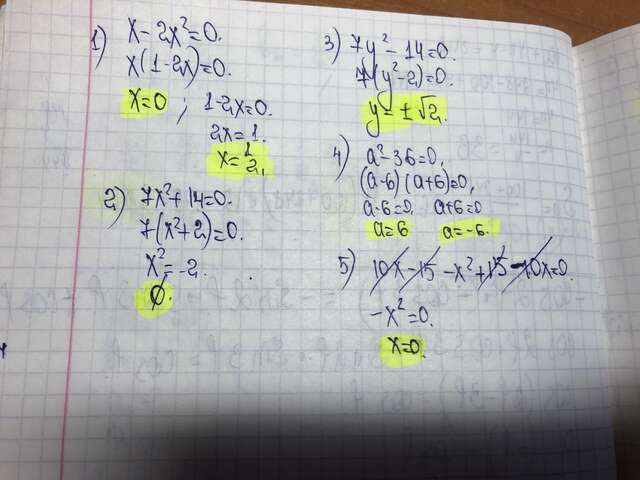 1) x - 2x² = 0.
x(1-2x) = 0.
x = 0 ; 1-2x = 0.
2x = 1.
x = 1/2.
2) 7x² + 14 = 0.
7(x²+2) = 0.
x² = -2.
∅.
3) 7y² - 14 = 0.
7(y²-2) = 0.
y = ± √2.
4) a² - 36 = 0.
(a-6)(a+6) = 0.
a-6 = 0. a+6 = 0.
a = 6 a = -6.
5) 10x - 15 - x² + 15 - 10x = 0.
-x² = 0.
x = 0.